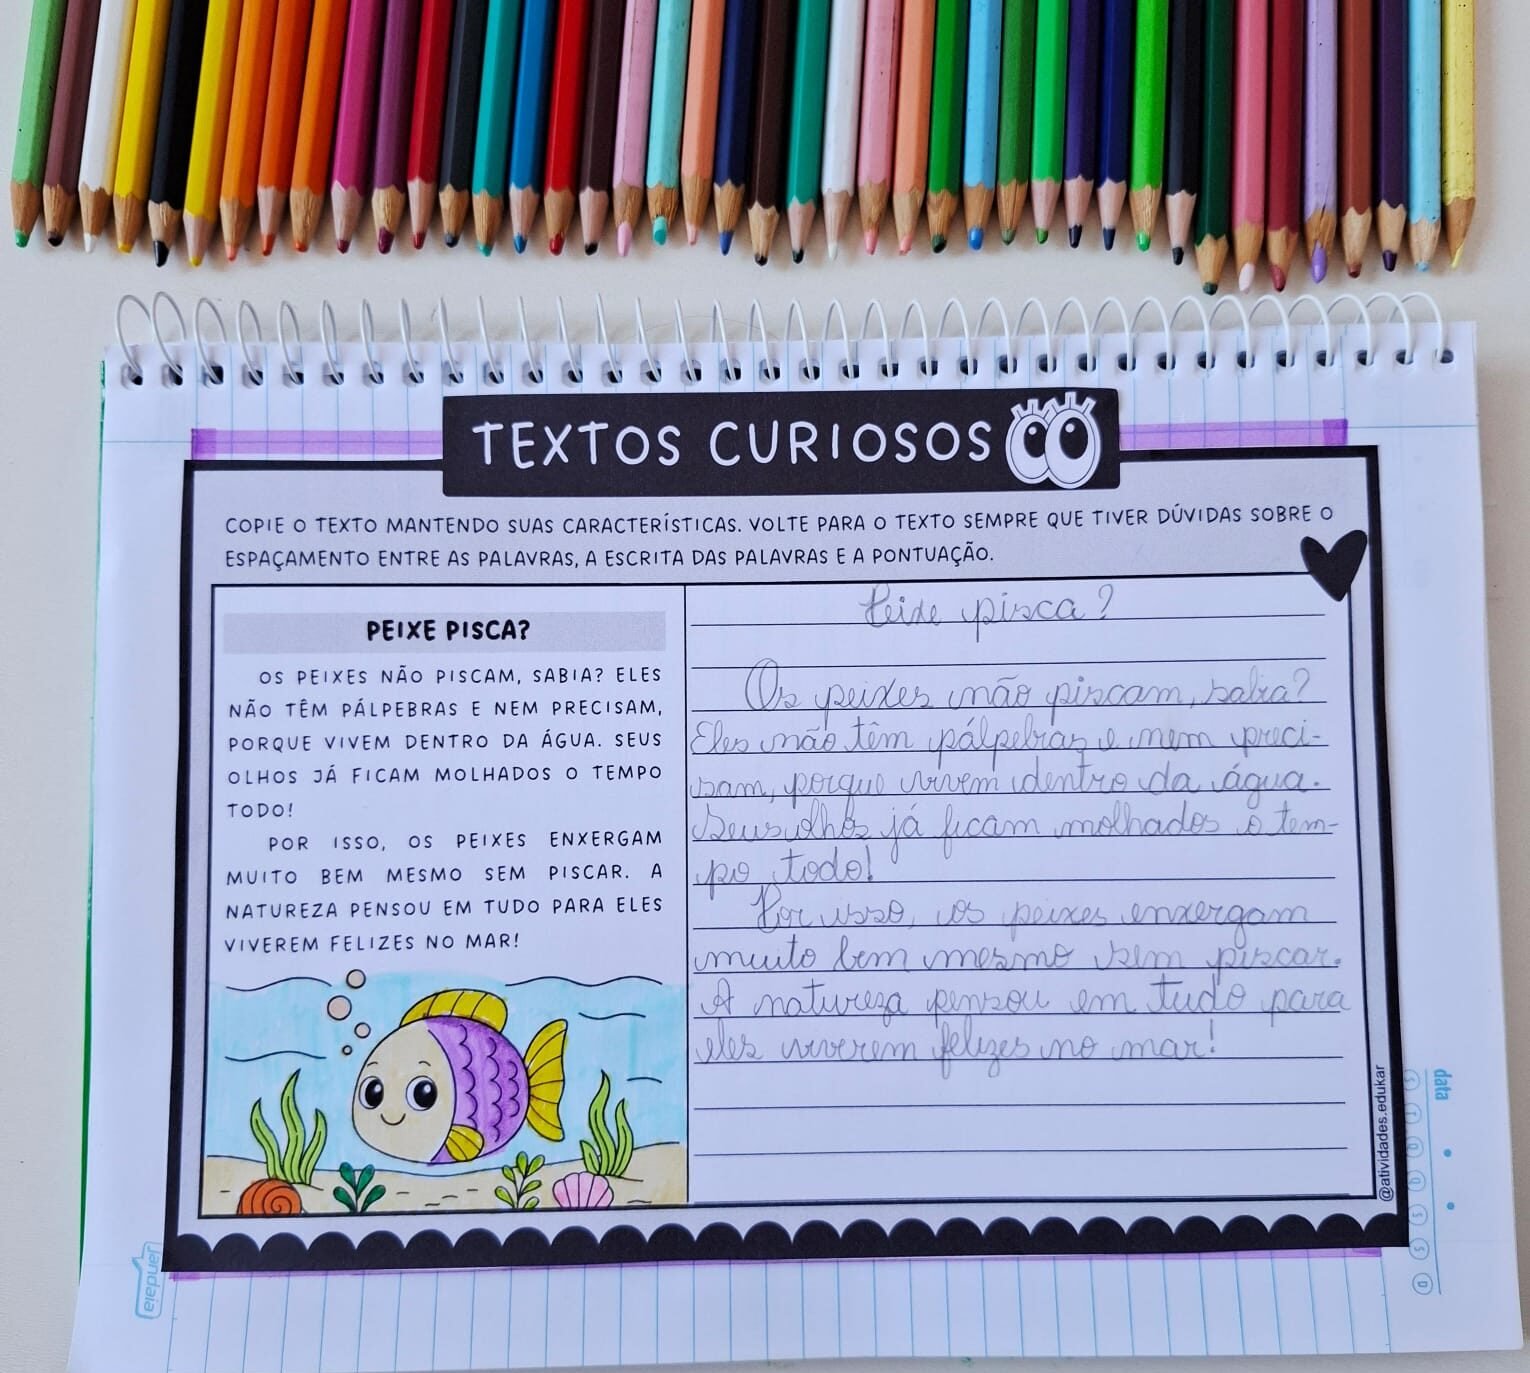 TEXTOS CURIOSOS
COPIE O TEXTO MANTENDO SUAS CARACTERÍSTICAS. VOLTE PARA O TEXTO SEMPRE QUE TIVER DÚVIDAS SOBRE O
ESPAÇAMENTO ENTRE AS PALAVRAS, A ESCRITA DAS PALAVRAS E A PONTUAÇÃO.
PEIXE PISCA?
OS PEIXES NÃO PISCAM, SABIA? ELES
NÃO TÊM PÁLPEBRAS E NEM PRECISAM,
PORQUE VIVEM DENTRO DA ÁGUA. SEUS
OLHOS JÁ FICAM MOLHADOS O TEMPO
TODO!
POR ISSO, OS PEIXES ENXERGAM
MUITO BEM MESMO SEM PISCAR. A
NATUREZA PENSOU EM TUDO PARA ELES
VIVEREM FELIZES NO MAR!
Peixe pisca?
Os peixes não piscam, sabia?
Eles não têm pálpebras e nem preci-
sam, porque vivem dentro da água.
Seus olhos já ficam molhados o tem-
po todo!
Por isso, os peixes enxergam
muito bem mesmo sem piscar.
A natureza pensou em tudo para
eles viverem felizes no mar!
@atividades.edukar
data
S T Q Q S S D
jandaia